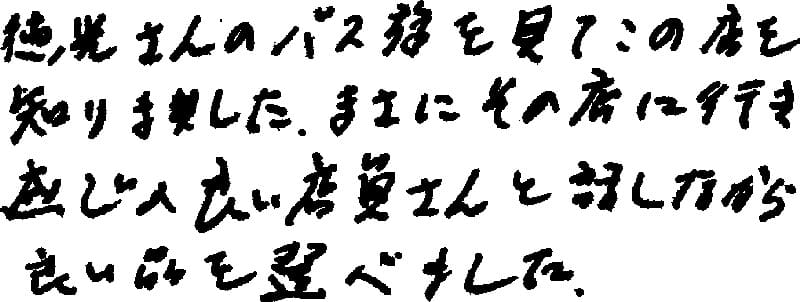 徳光さんのバス旅を見てこの店を
知りました。まさにその店に行き
感じの良い店員さんと話しながら
良い品を選べました。